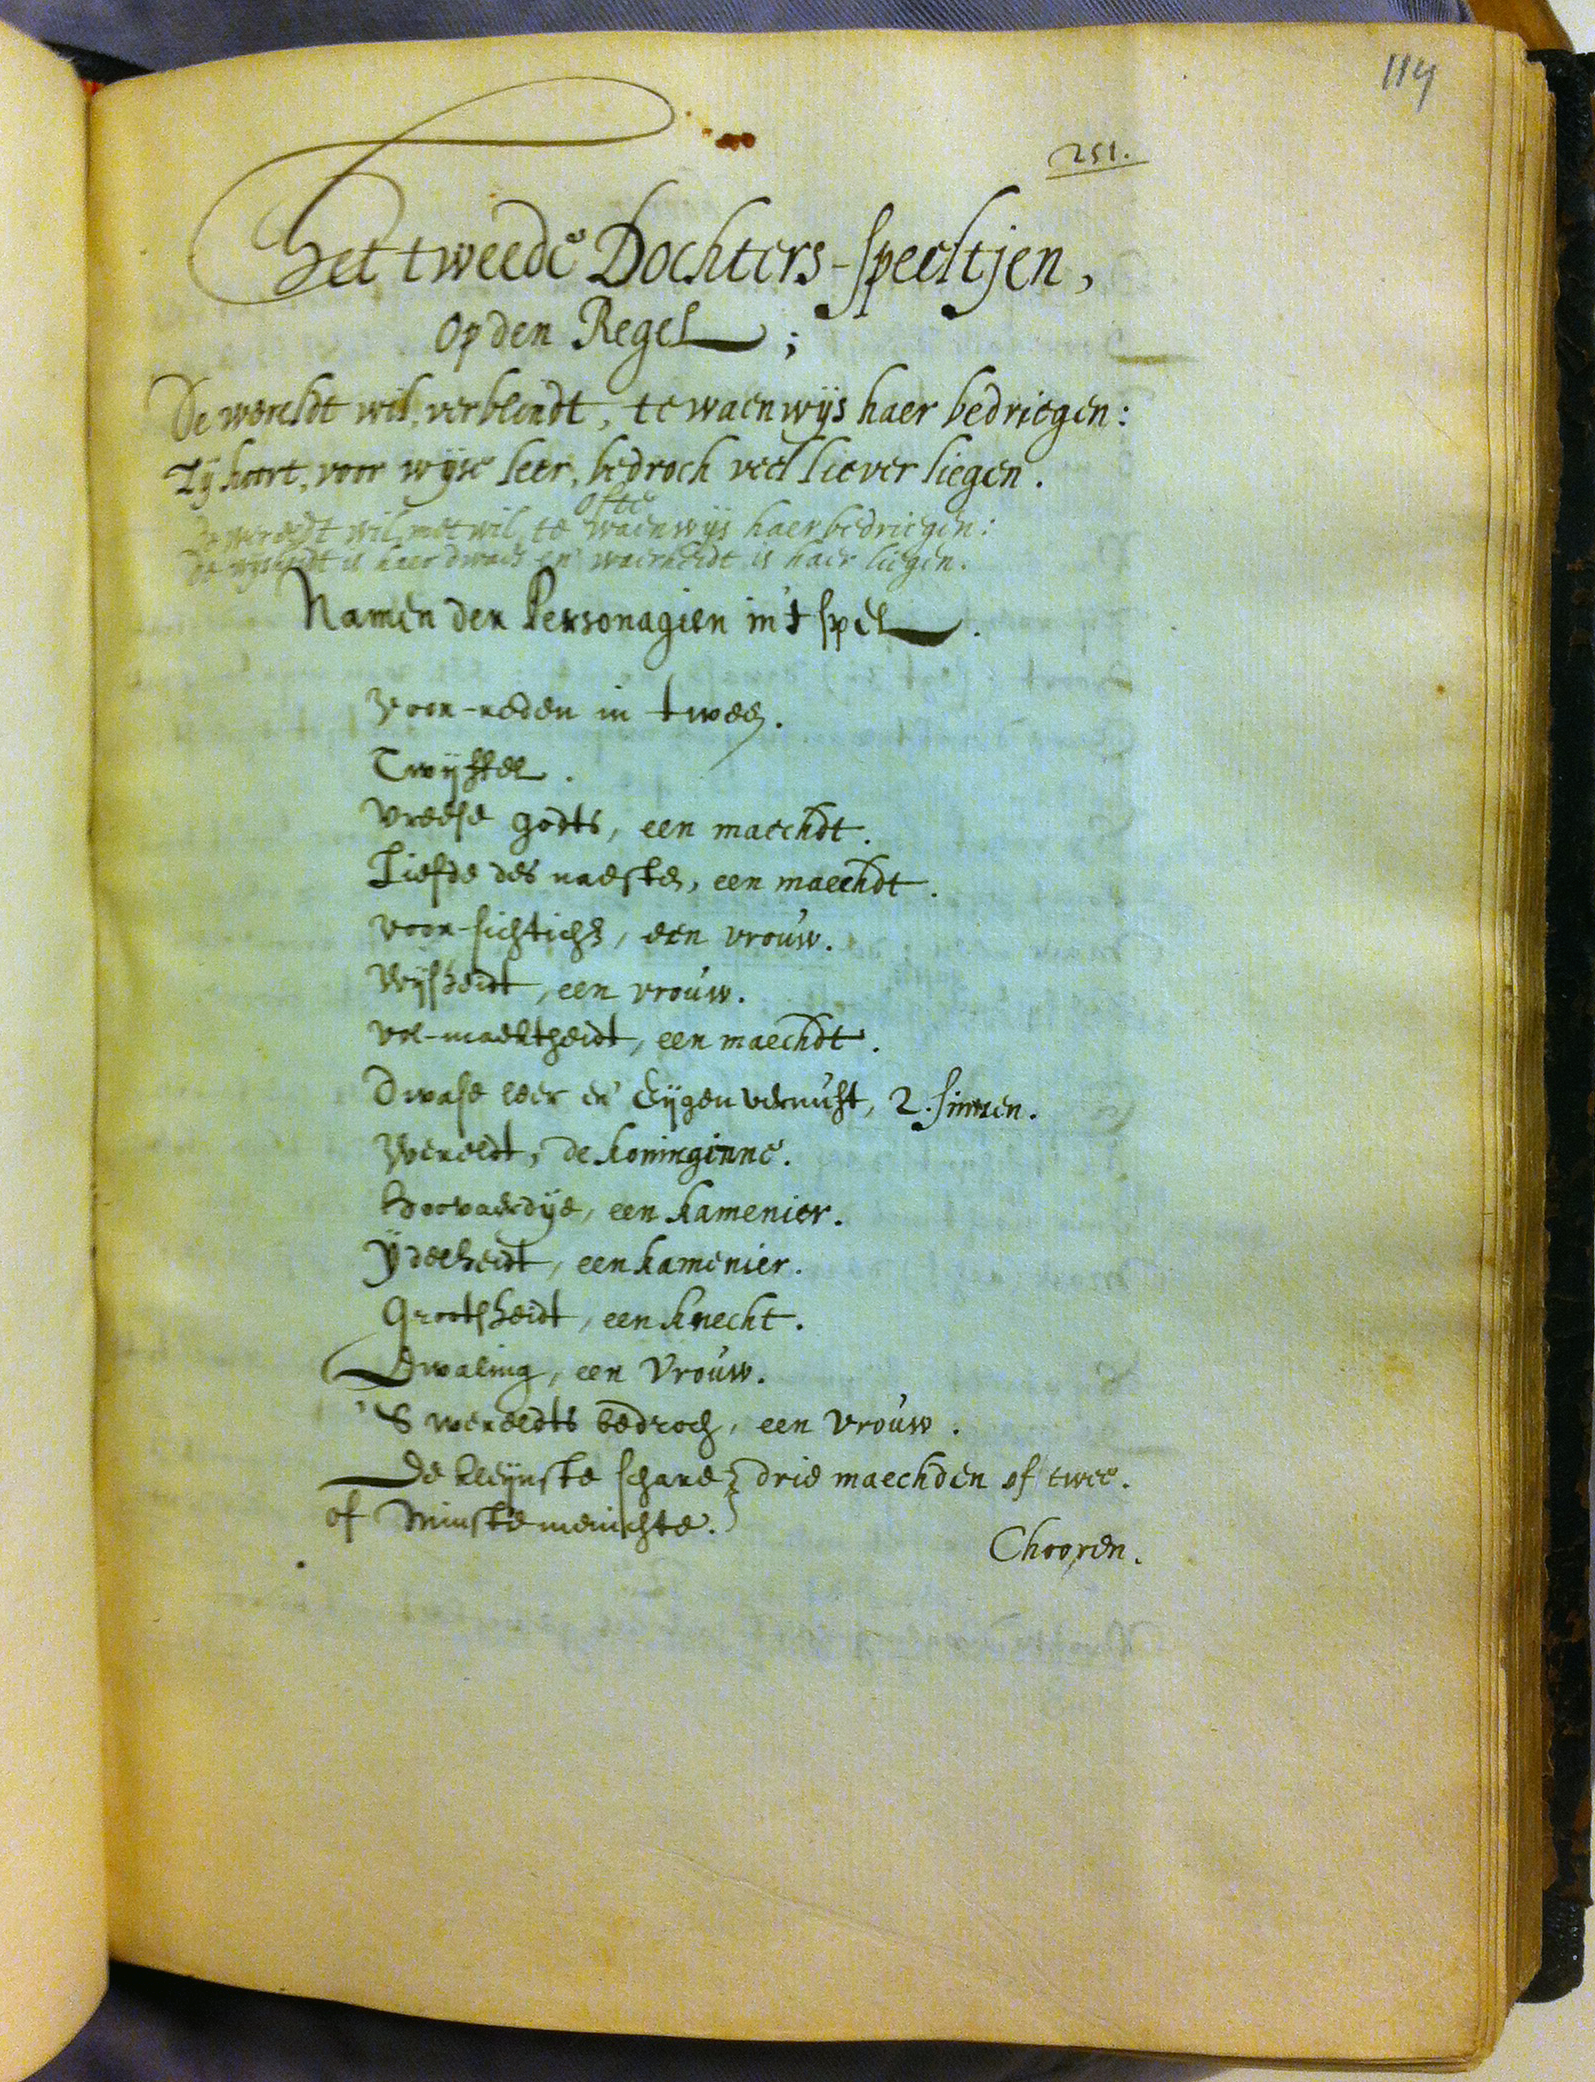 119
251.
Het tweede Dochters-speeltjen,
Op den Regel;
De wereldt wil, verblindt, te waenwijs haer bedriegen:
Zij hoort, voor wijse leer, bedroch veel liever liegen.
ofte
De wereldt wil, met wil, te waenwijs haer bedriegen:
De wijsheidt is haer dwaes en' waerheidt is haer liegen.
Namen der Personagien in't spel.
Voor-reden in twee.
Twijffel.
Vreese godts, een maechdt.
Liefde des naesten, een maechdt.
Voor-sichtich, een vrouw.
Wijsheidt, een vrouw.
Vol-maektheidt, een maechdt.
Dwase leer en' Eijgen vernuft, 2. sinnen.
Wereldt, de koninginne.
Hoovaerdije, een kamenier.
Ijdelheidt, een kamenier.
Grootsheidt, een knecht.
Dwaling, een Vrouw.
'S wereldts bedroch, een Vrouw.
De kleijnste schare } drie maechden of twee.
of Minste menichte. }
Chooren.